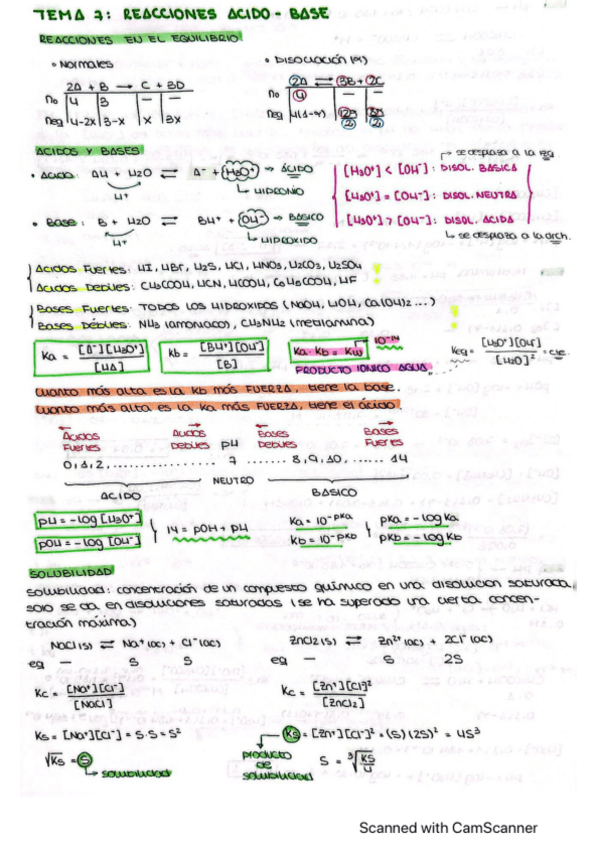 TEMA 7: REACCIONES ACIDO - BASE
REACCIONES EN EL EQUILIBRIO:
• Normales • DISOCIACIÓN (α)
2A + B → C + 3D 2A ⇌ 3B + 2C
no 4 3 — — no 4 — —
neq 4-2x 3-x x 3x neq 4(1-α)
ACIDOS Y BASES
→ se desplaza a la izq
• Acido: AH + H2O ⇌ A⁻ + H3O⁺ → ÁCIDO
H⁺ ↳ HIDRONIO
[H3O⁺] < [OH⁻]: DISOL. BÁSICA
[H3O⁺] = [OH⁻]: DISOL. NEUTRA
[H3O⁺] > [OH⁻]: DISOL. ÁCIDA
↳ se desplaza a la drch.
• Base: B + H2O ⇌ BH⁺ + OH⁻ → BÁSICO
H⁺ ↳ HIDRÓXIDO
Acidos Fuertes: HI, HBr, H2S, HCl, HNO3, H2CO3, H2SO4
Acidos Debiles: CH3COOH, HCN, HCOOH, C6H5COOH, HF
Bases Fuertes: TODOS LOS HIDROXIDOS (NaOH, LiOH, Ca(OH)2...)
Bases Débiles: NH3 (amoniaco), CH3NH2 (metilamina)
Ka = [A⁻][H3O⁺] / [HA] Kb = [BH⁺][OH⁻] / [B] Ka · Kb = Kw 10⁻¹⁴ Keq = [H3O⁺][OH⁻] / [H2O]² = cte.
PRODUCTO IONICO AGUA
Cuanto más alta es la Kb más FUERZA, tiene la base.
Cuanto más alta es la Ka más FUERZA, tiene el ácido.
Ácidos Fuertes Ácidos Debiles pH Bases Debiles Bases Fuertes
0,1,2, .................... 7 ....... 8, 9, 10, ...... 14
ACIDO NEUTRO BÁSICO
pH = -log [H3O⁺]
pOH = -log [OH⁻]
14 = pOH + pH
Ka = 10^-pKa pKa = -log Ka
Kb = 10^-pKb pKb = -log Kb
SOLUBILIDAD
Solubilidad: concentración de un compuesto químico en una disolucion saturada,
solo se da en disoluciones saturadas (se ha superado una cierta concen-
tración máxima)
NaCl (s) ⇌ Na⁺ (ac) + Cl⁻ (ac) ZnCl2 (s) ⇌ Zn²⁺ (ac) + 2Cl⁻ (ac)
eq — S S eq — S 2S
Kc = [Na⁺][Cl⁻] / [NaCl] Kc = [Zn⁺][Cl]² / [ZnCl2]
Ks = [Na⁺][Cl⁻] = S·S = S² Ks = [Zn⁺][Cl⁻]² = (S)(2S)² = 4S³
√Ks = S
↳ solubilidad
producto
de
solubilidad
S = ³√(Ks/4)
Scanned with CamScanner